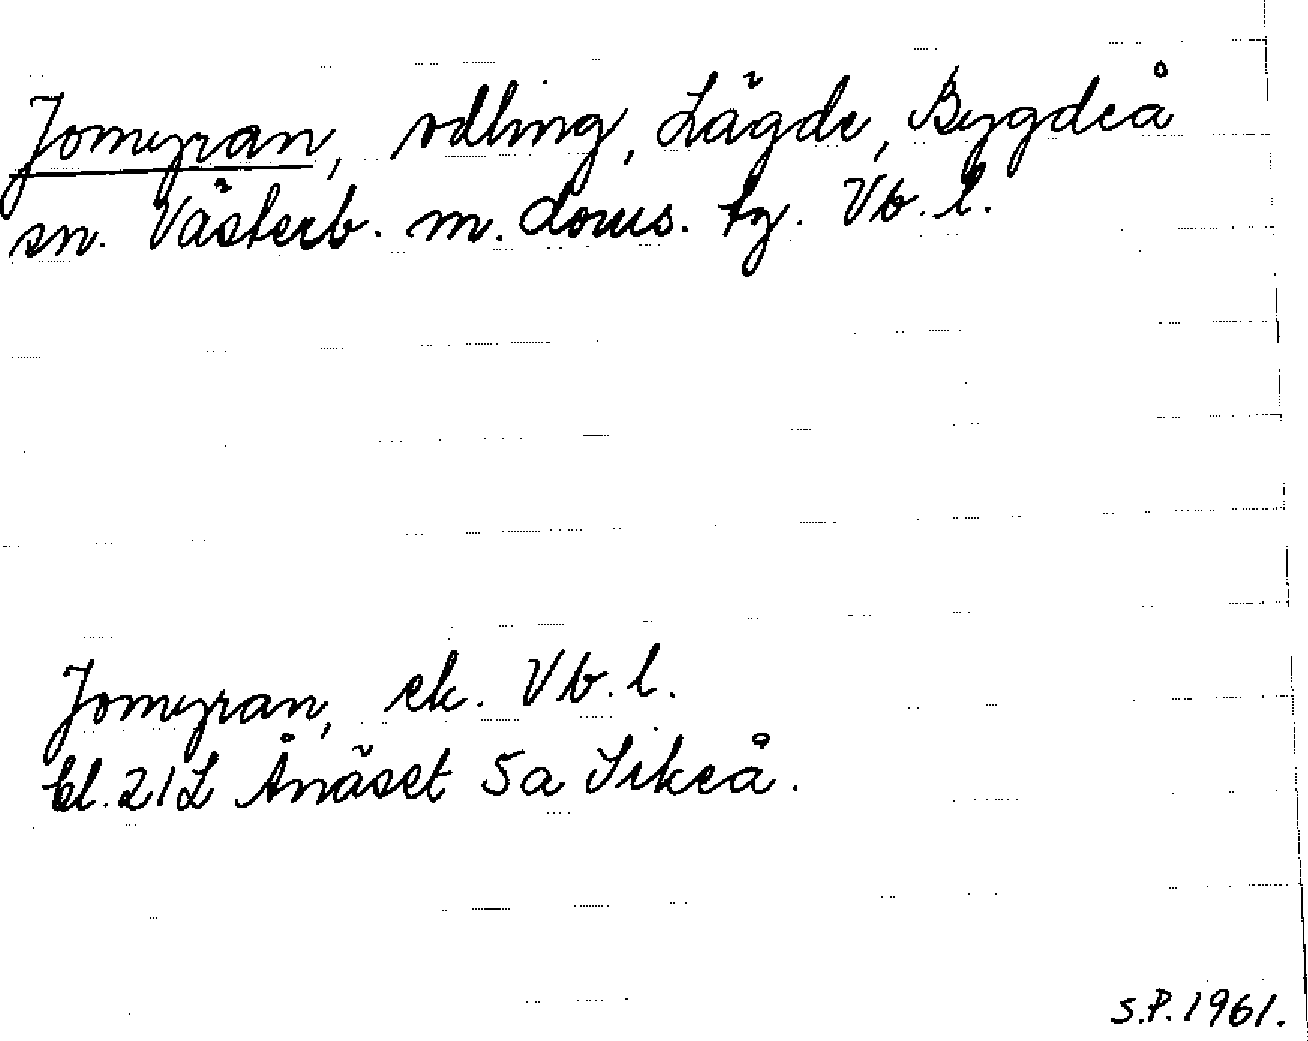 Jomyran, odling, Lägde, Bygdeå
sn. Västerb. m. doms. tg. Vb. l.
Jomyran, ek. Vb. l.
bl. 21L Ånäset 5a Sikeå.
S.P. 1961.